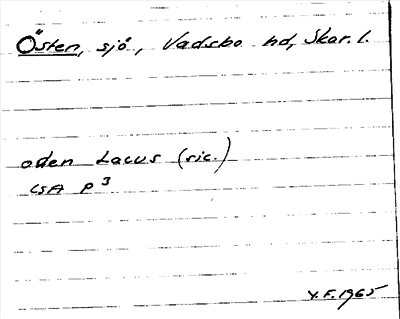 Östen, sjö, Vadsbo hd, Skar. l.
oden Lacus (sic.)
LSA P 3
Y. F. 1965